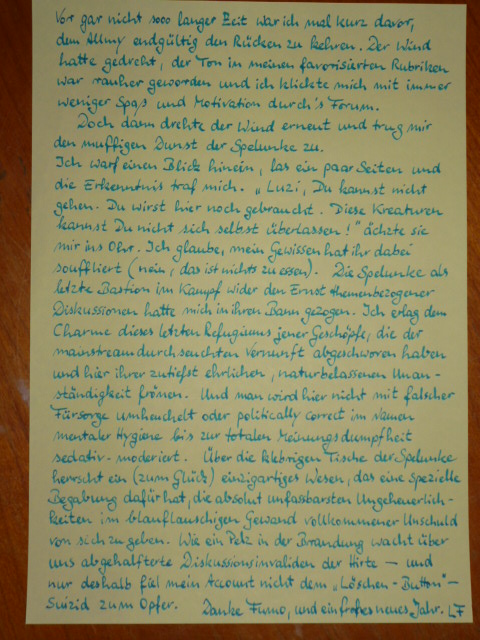 Vor gar nicht sooo langer Zeit war ich mal kurz davor,
dem Allmy endgültig den Rücken zu kehren. Der Wind
hatte gedreht, der Ton in meinen favorisierten Rubriken
war rauher geworden und ich klickte mich mit immer
weniger Spaß und Motivation durch's Forum.
Doch dann drehte der Wind erneut und trug mir
den muffigen Dunst der Spelunke zu.
Ich warf einen Blick hinein, las ein paar Seiten und
die Erkenntnis traf mich. „Luzi, Du kannst nicht
gehen. Du wirst hier noch gebraucht. Diese Kreaturen
kannst Du nicht sich selbst überlassen!" ächzte sie
mir ins Ohr. Ich glaube, mein Gewissen hat ihr dabei
souffliert (nein, das ist nichts zu essen). Die Spelunke als
letzte Bastion im Kampf wider den Ernst themenbezogener
Diskussionen hatte mich in ihren Bann gezogen. Ich erlag dem
Charme dieses letzten Refugiums jener Geschöpfe, die der
mainstreamdurchseuchten Vernunft abgeschworen haben
und hier ihrer zutiefst ehrlichen, naturbelassenen Unan-
ständigkeit frönen. Und man wird hier nicht mit falscher
Fürsorge umheuchelt oder politically correct im Namen
mentaler Hygiene bis zur totalen Meinungsdumpfheit
sedativ-moderiert. Über die klebrigen Tische der Spelunke
herrscht ein (zum Glück) einzigartiges Wesen, das eine spezielle
Begabung dafür hat, die absolut unfassbarsten Ungeheuerlich-
keiten im blauflauschigen Gewand vollkommener Unschuld
von sich zu geben. Wie ein Pelz in der Brandung wacht über
uns abgehalfterte Diskussionsinvaliden der Hirte – und
nur deshalb fiel mein Account nicht dem „Löschen-Button"-
Suizid zum Opfer. Danke Fumo, und ein frohes neues Jahr. LF